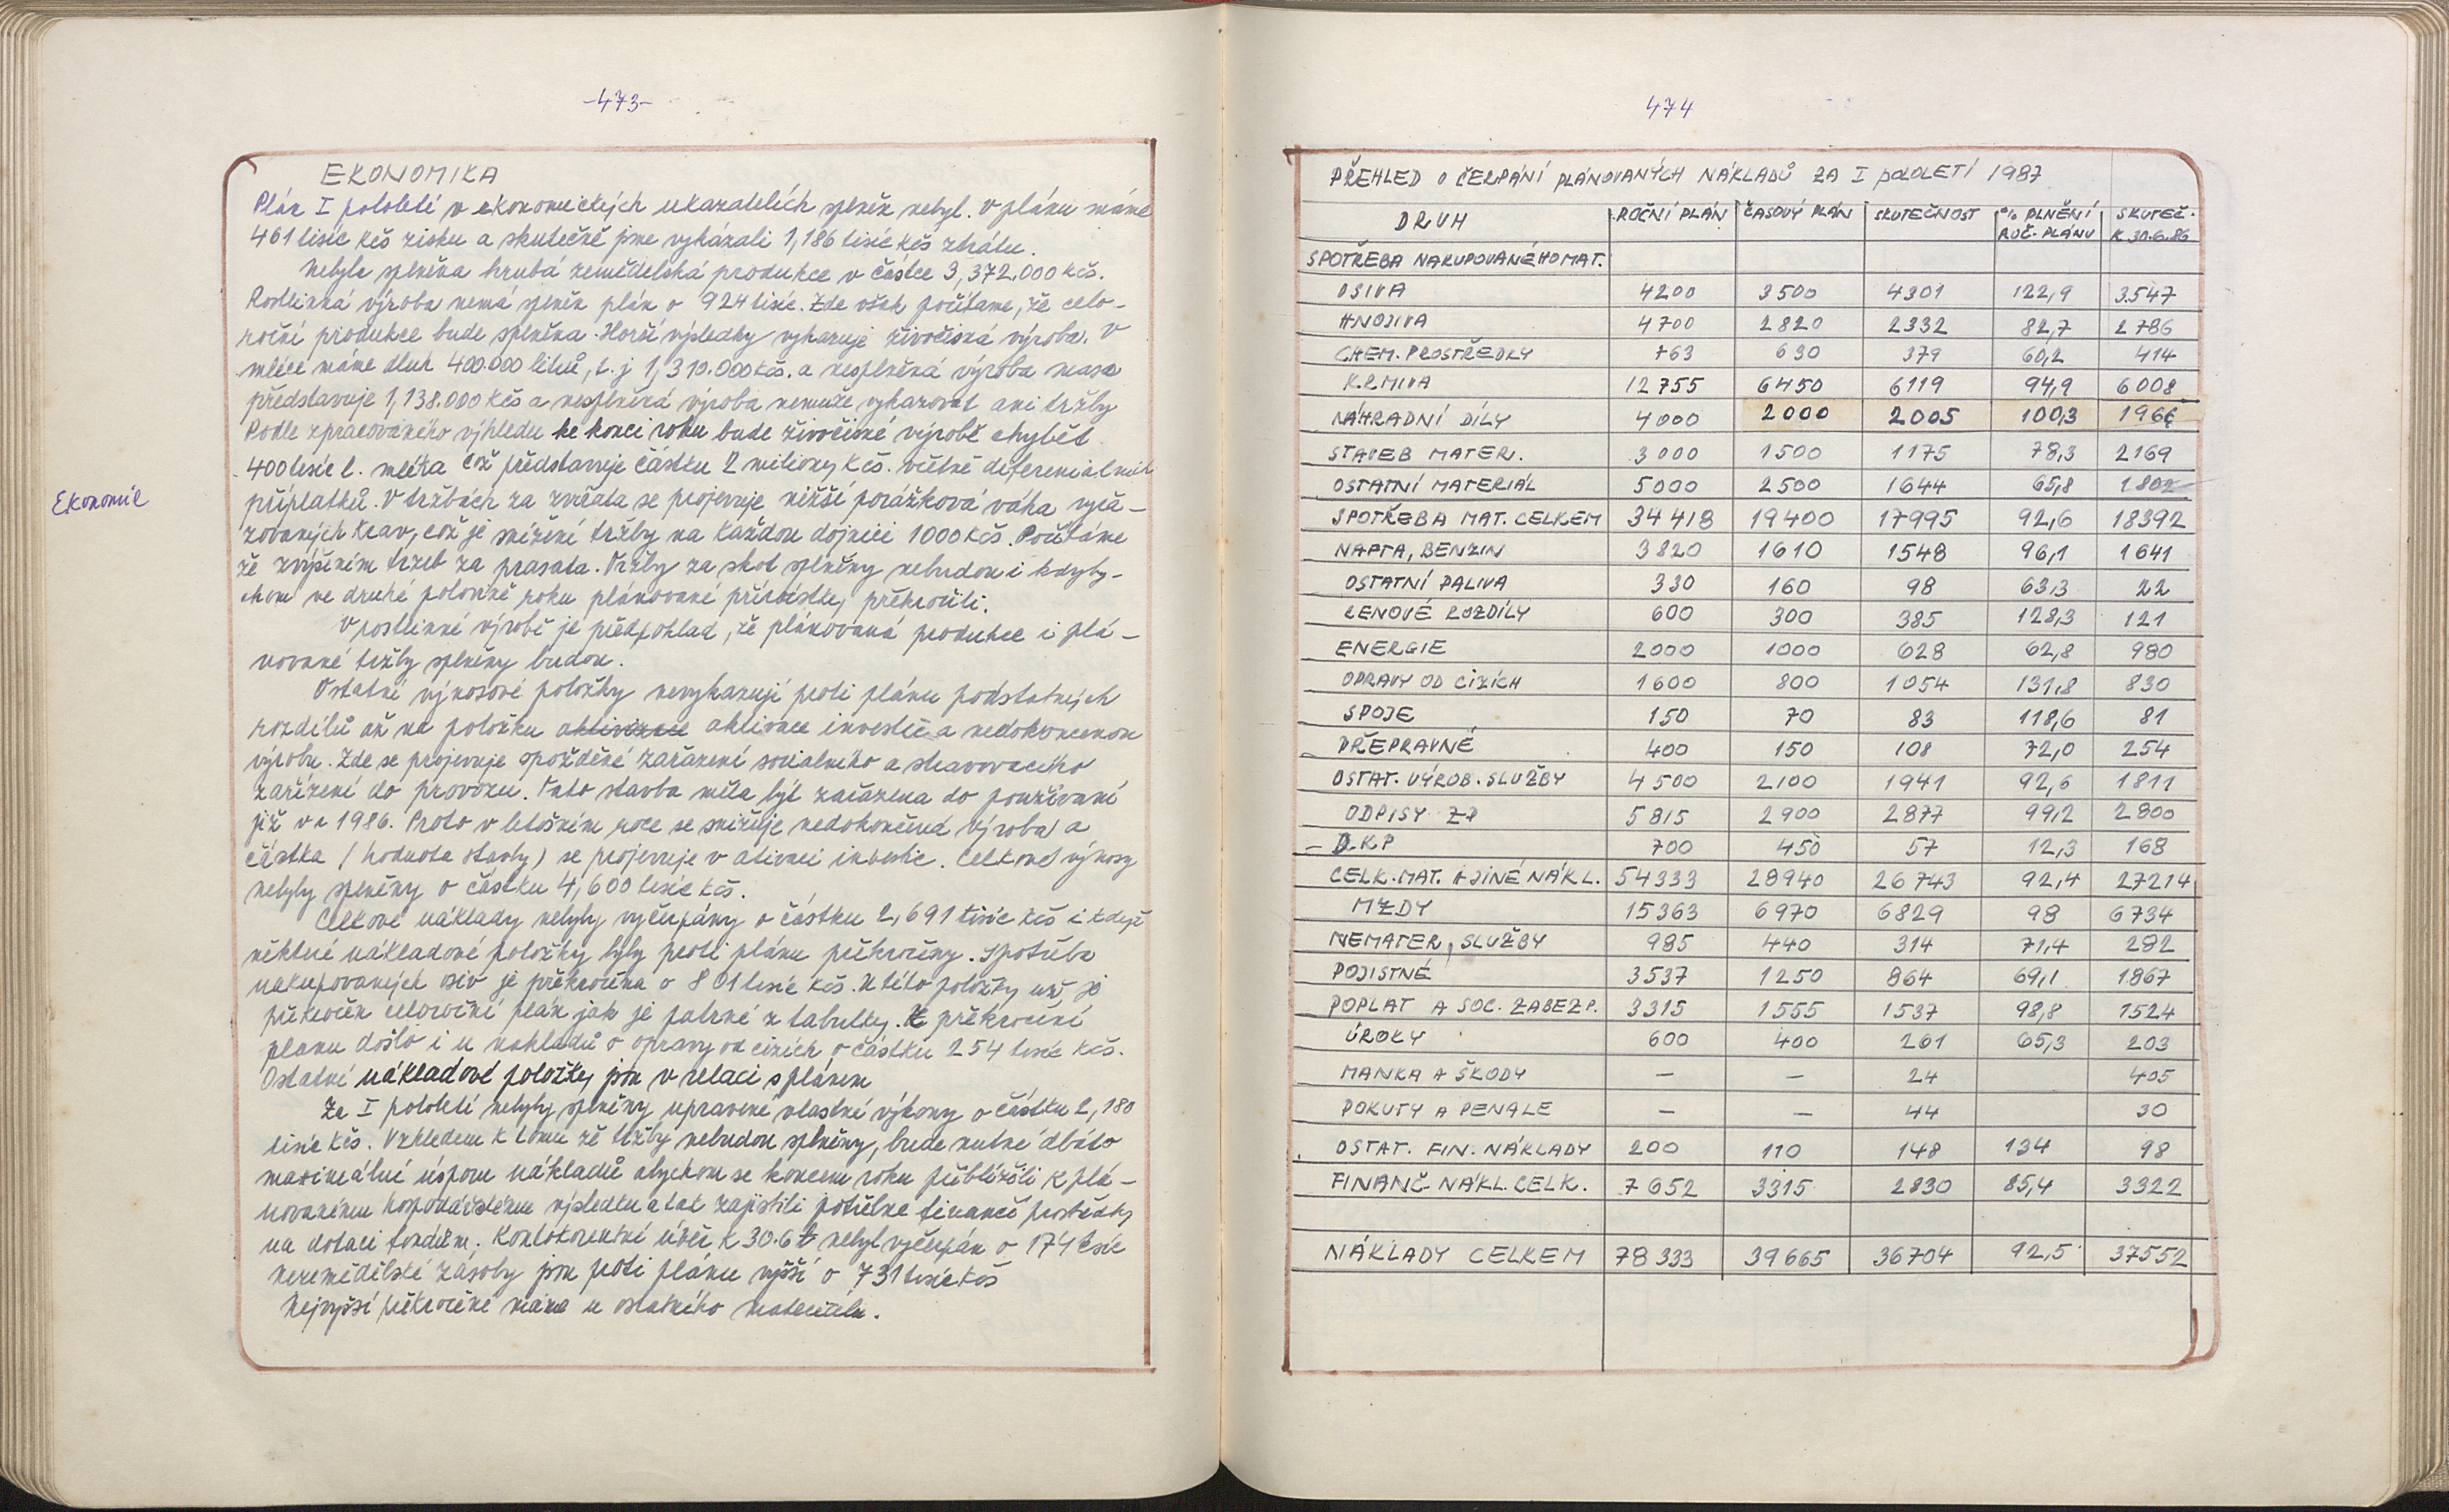 -473-
EKONOMIKA
Plán I pololetí v ekonomických ukazatelích splněn nebyl. V plánu máme
461 tisíc Kčs zisku a skutečně jsme vykázali 1,186 tisíc Kčs ztrátu.
Nebyla splněna hrubá zemědělská produkce v částce 3,372.000 Kčs.
Rostlinná výroba nemá splněn plán o 924 tisíc. Zde však počítáme, že celo-
roční produkce bude splněna. Horší výsledky vykazuje živočišná výroba. V
mléce máme dluh 400.000 litrů, t. j 1,310.000 Kčs. a nesplněná výroba masa
představuje 1,138.000 Kčs a nesplněná výroba nemůže vykazovat ani tržby
Podle zpracovaného výhledu ke konci roku bude živočišné výrobě chybět
400 tisíc l. mléka což představuje částku 2 miliony Kčs. včetně diferenciálních
příplatků. V tržbách za zvířata se projevuje nižší porážková váha vyřa-
Ekonomie
zovaných krav, což je snížení tržby na každou dojnici 1000 Kčs. Počítáme
že zvýšením tržeb za prasata. Tržby za skot splněny nebudou i kdyby-
chom ve druhé polovině roku plánované přírůstky překročili.
V rostlinné výrobě je předpoklad, že plánovaná produkce i plá-
nované tržby splněny budou.
Ostatní výnosové položky nevykazují proti plánu podstatných
rozdílů až na položku aktivizace aktivace investic a nedokončenou
výrobu. Zde se projevuje zpoždění zařazení sociálního a stravovacího
zařízení do provozu. Tato stavba měla být zařazena do používání
již v r 1986. Proto v letošním roce se snižuje nedokončená výroba a
částka (hodnota stavby) se projevuje v ativaci investic. Celkové výnosy
nebyly splněny o částku 4,600 tisíc Kčs.
Celkové náklady nebyly vyčerpány o částku 2,691 tisíc Kčs i když
některé nákladové položky byly proti plánu překročeny. Spotřeba
nakupovaných osiv je překročena o 801 tisíc Kčs. U této položky už je
překročen celoroční plán jak je patrné z tabulky. K překročení
plánu došlo i u nákladů o opravy od cizích o částku 254 tisíc Kčs.
Ostatní nákladové položky jsou v relaci s plánem
Za I pololetí nebyly splněny upravené vlastní výkony o částku 2,180
tisíc Kčs. Vzhledem k tomu že tržby nebudou splněny, bude nutné dbáto
maximální úsporu nákladů abychom se koncem roku přiblížili k plá-
novanému hospodářskému výsledku a tak zajistili potřebné finanční prostředky
na dotaci fondům. Kontokorentní úvěr k 30.6 nebyl vyčerpán o 174 tisíc
nezemědělské zásoby jsou proti plánu vyšší o 731 tisíc Kčs
Nejvyšší překročení máme u ostatního materiálu.
474
PŘEHLED O ČERPÁNÍ PLÁNOVANÝCH NÁKLADŮ ZA I POLOLETÍ 1987
DRUH ROČNÍ PLÁN ČASOVÝ PLÁN SKUTEČNOST % PLNĚNÍ ROČ. PLÁNU SKUTEČ. K 30.6.86
SPOTŘEBA NAKUPOVANÉHO MAT.
OSIVA 4200 3500 4301 122,9 3.547
HNOJIVA 4700 2820 2332 82,7 2786
CHEM. PROSTŘEDKY 763 630 379 60,2 414
KRMIVA 12755 6450 6119 94,9 6008
NÁHRADNÍ DÍLY 4000 2000 2005 100,3 1966
STAVEB MATER. 3000 1500 1175 78,3 2169
OSTATNÍ MATERIÁL 5000 2500 1644 65,8 1802
SPOTŘEBA MAT. CELKEM 34418 19400 17995 92,6 18392
NAFTA, BENZIN 3820 1610 1548 96,1 1641
OSTATNÍ PALIVA 330 160 98 63,3 22
CENOVÉ ROZDÍLY 600 300 385 128,3 121
ENERGIE 2000 1000 628 62,8 980
OPRAVY OD CIZÍCH 1600 800 1054 131,8 830
SPOJE 150 70 83 118,6 81
PŘEPRAVNÉ 400 150 108 72,0 254
OSTAT. VÝROB. SLUŽBY 4500 2100 1941 92,6 1811
ODPISY ZP 5815 2900 2877 99,2 2800
DKP 700 450 57 12,3 168
CELK. MAT. A JINÉ NÁKL. 54333 28940 26743 92,4 27214
MZDY 15363 6970 6829 98 6734
NEMATER, SLUŽBY 985 440 314 71,4 282
POJISTNÉ 3537 1250 864 69,1 1867
POPLAT A SOC. ZABEZP. 3315 1555 1537 98,8 1524
ÚROKY 600 400 261 65,3 203
MANKA A ŠKODY — — 24 405
POKUTY A PENALE — — 44 30
OSTAT. FIN. NÁKLADY 200 110 148 134 98
FINANČ. NÁKL. CELK. 7652 3315 2830 85,4 3322
NÁKLADY CELKEM 78333 39665 36704 92,5 37552